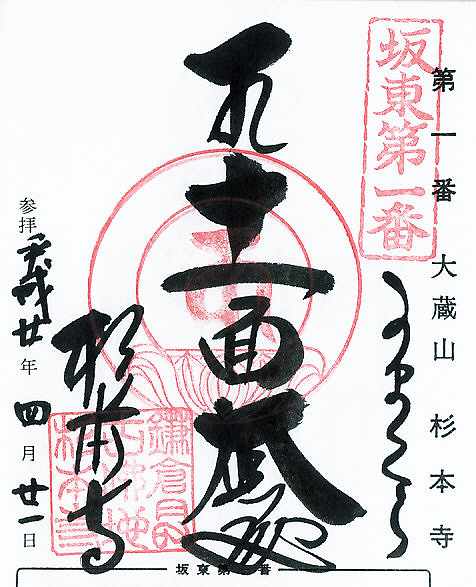 坂東第一番
第一番 大蔵山 杉本寺
かまくら
十一面
杉本寺
鎌倉最古仏地杉本寺
参拝 平成廿年四月廿一日
坂東第一番